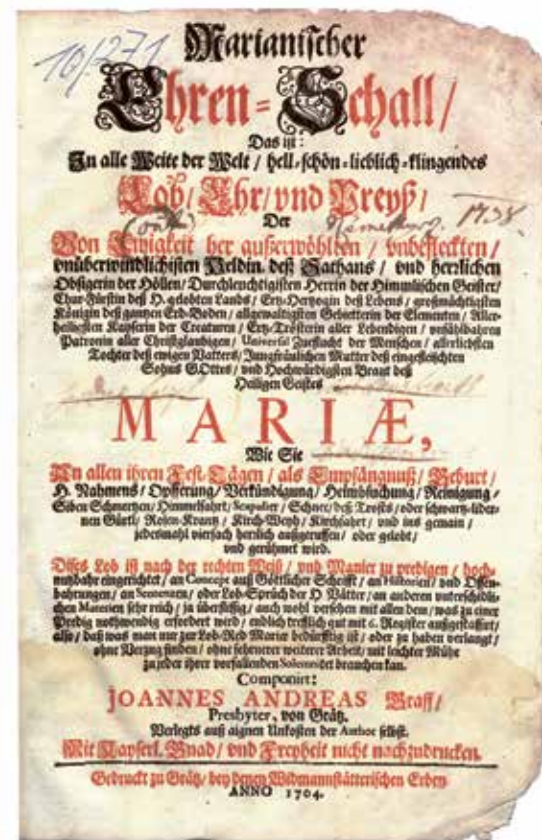 10/271
Marianischer
Ehren-Schall/
Das ist:
In alle Weite der Welt / hell-schön-lieblich-klingendes
Lob/ Ehr/ vnd Preyß/
Der
1738.
Von Ewigkeit her außerwöhlten / vnbefleckten /
vnüberwindlichisten Heldin deß Sathans / vnd herrlichen
Obsigerin der Höllen / Durchleuchtigisten Herrin der Himmlischen Geister /
Chur-Fürstin deß H. gelobten Lands / Ertz-Hertzogin deß Lebens / großmächtigsten
Königin deß gantzen Erd-Boden / allgewaltigsten Gebietterin der Elementen / Aller-
heiligsten Kayserin der Creaturen / Ertz-Trösterin aller Lebendigen / vnfählbahren
Patronin aller Christglaubigen / Universal Zueflucht der Menschen / allerliebsten
Tochter deß ewigen Vatters / Jungfräulichen Mutter deß eingefleischten
Sohns GOttes / vnd Hochwürdigsten Braut deß
Heiligen Geistes
MARIÆ,
Wie Sie
An allen ihren Fest-Tägen / als Empfängnuß / Geburt /
H. Nahmens / Opfferung / Verkündigung / Heimbsuchung / Reinigung /
Siben Schmertzen / Himmelfahrt / Scapulier / Schnee / deß Trosts / oder schwartz-lider-
nen Gürtl / Rosen-Krantz / Kirch-Weyh / Kirchfahrt / vnd ins gemain /
jedesmahl vierfach herrlich außgeruffen / oder gelobt /
vnd gerühmet wird.
Dises Lob ist nach der rechten Weiß / vnd Manier zu predigen / hoch-
nutzbahr eingerichtet / an Concept auß Göttlicher Schrifft / an Historien / vnd Offen-
bahrungen / an Sententzen / oder Lob-Sprüch der H. Vätter / an anderen vnterschidli-
chen Materien sehr reich / ja überflüssig / auch wohl versehen mit allen dem / was zu einer
Predig nothwendig erfordert wird / endlich trefflich gut mit 6. Register außgestaffirt /
also / daß was man nur zur Lob-Red Mariæ bedürfftig ist / oder zu haben verlangt /
ohne Verzug finden / ohne fehenerer weiterer Arbeit / mit leichter Mühe
zu jeder ihrer vorfallenden Solemnitet brauchen kan.
Componirt:
JOANNES ANDREAS Graff /
Presbyter, von Grätz.
Verlegts auß aignen Unkosten der Author selbst.
Mit Kayserl. Gnad / vnd Freyheit nicht nachzudrucken.
Gedruckt zu Grätz / bey denen Widmannstätterischen Erben
ANNO 1704.